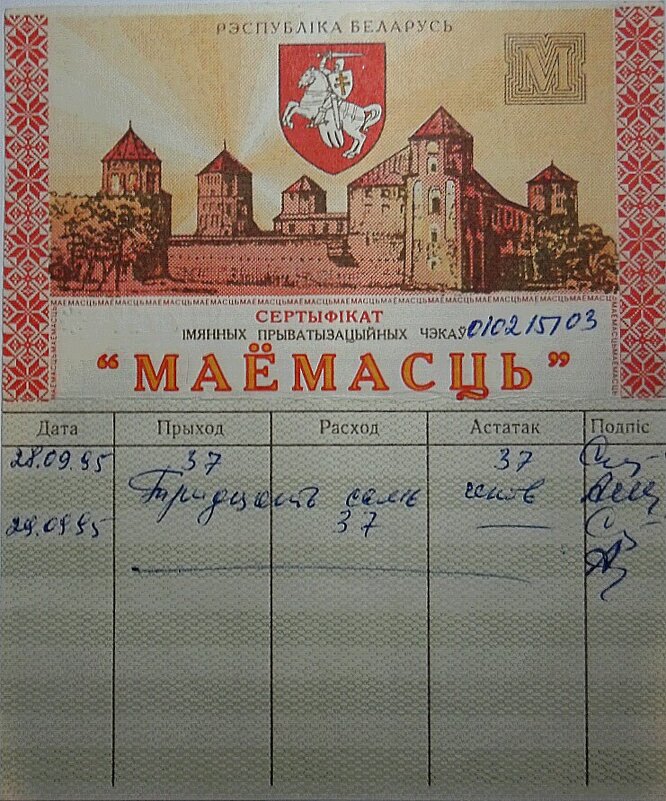 РЭСПУБЛІКА БЕЛАРУСЬ
М
МАЁМАСЦЬМАЁМАСЦЬМАЁМАСЦЬМАЁМАСЦЬМАЁМАСЦЬМАЁМАСЦЬМАЁМАСЦЬМАЁМАСЦЬМАЁМАСЦЬ
СЕРТЫФІКАТ
ІМЯННЫХ ПРЫВАТЫЗАЦЫЙНЫХ ЧЭКАЎ 010215103
“МАЁМАСЦЬ”
Дата Прыход Расход Астатак Подпіс
28.09.95 37 37
Тридцать семь чеков
29.09.95 37 —